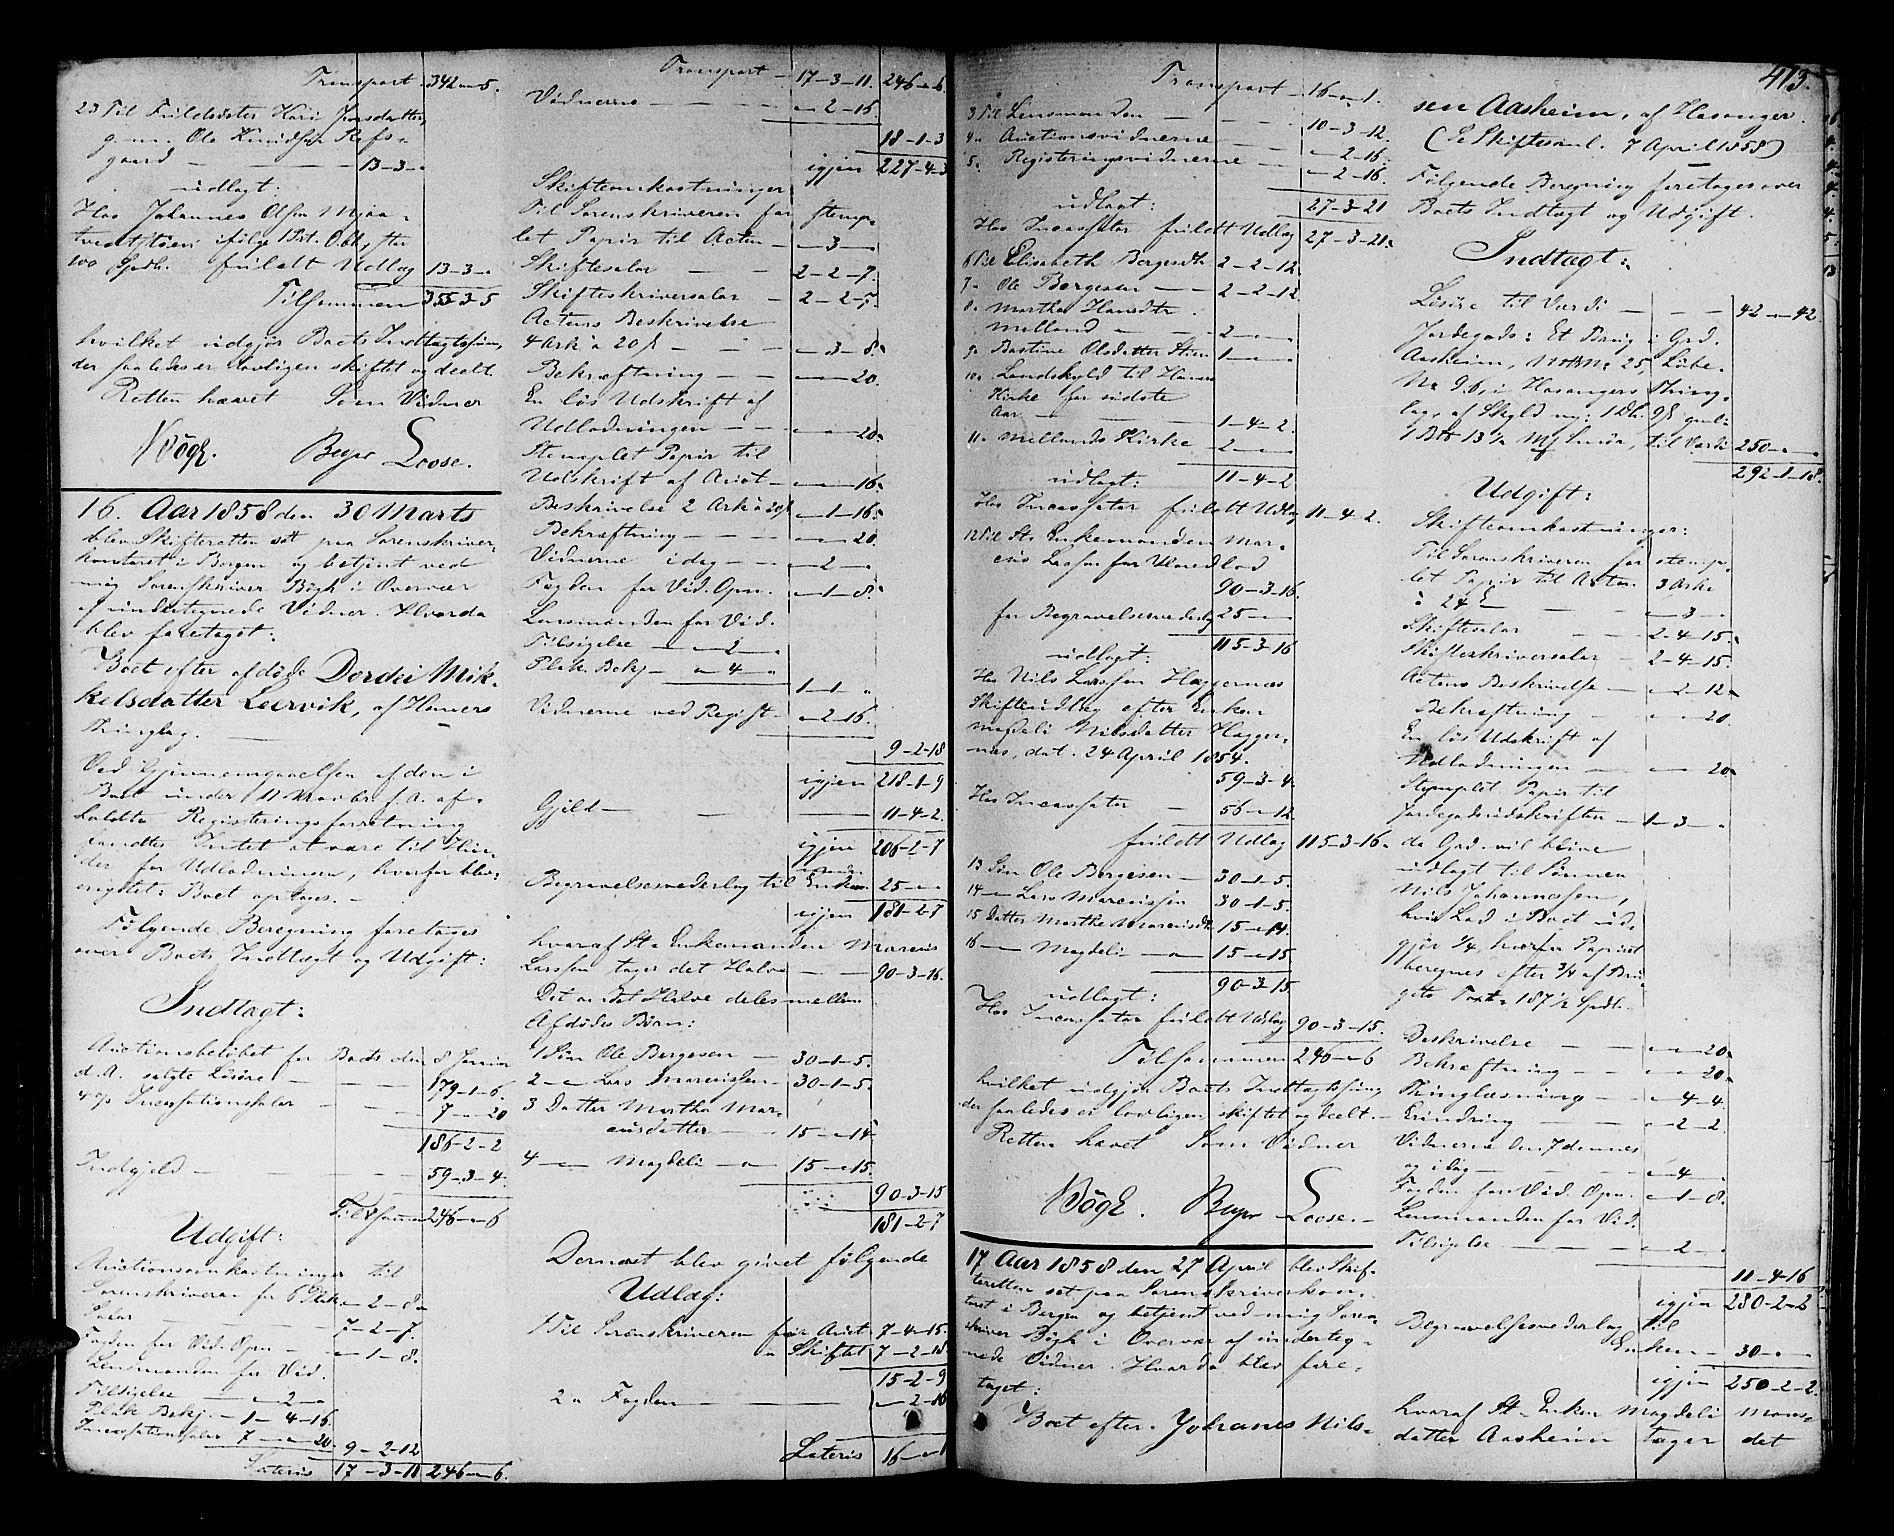 Transport 342 " 5.
23 Til Fuldsøster Kari Jonsdatter,
g. m. Ole Knudsen Refs-
gaard — 13-3-"
udlagt:
Hos Johannes Olsen Mjaa-
tvedt ifølge Pt. Obl. for
100 Spdlr. fuldt Udlæg 13-3-"
Tilsammen 355-3-5
hvilket udgjør Boets Indtægtssum,
der saaledes er lovligen skiftet og deelt.
Retten hævet Som Vidner
Bøgh. Beyer Loose.
16. Aar 1858 den 30 Marts
blev Skifteretten sat paa Sorenskriver-
kontoret i Bergen og betjent ved
mig Sorenskriver Bøgh i Overvær
af undertegnede Vidner. Hvorda
blev foretaget:
Boet efter afdøde Dordei Mik-
kelsdatter Leervik, af Hammers
Thinglag.
Ved Gjennemgaaelsen af den i
Boet under 11 Novbr. f. A. af-
holdte Registeringsforretning
fandtes Intet at være til Hin-
der for Udlodningen, hvorfor blev
Boet optages. —
Følgende Beregning foretages
over Boets Indtægt og Udgift:
Indtægt:
Auctionsbeløbet for Boets den 8 Januar
d. A. solgte Løsøre — 179-1-6.
4 % Incassationssalær — 7-"-20
186-2-2
Indgjeld — 59-3-4.
Tilsammen 246-"-6
Udgift:
Auctionsomkostninger til
Sorenskriveren for 6 Plak. "-2-8
Salær — 7-2-7.
Fogden for Vid. Opn. — "-1-8.
Lensmanden for Vid.
Tilsigelse — "-2-"
Plak. Bekj. — 1-4-16
Incassationssalær 7-"-20. 9-2-12
Lateris 17-3-11 246-"-6.
Transport — 17-3-11. 246-"-6.
Vidnerne — "-2-16.
18-1-3
igjen 227-4-3
Skifteomkostninger
Til Sorenskriveren for stemp-
let Papir til Acten — "-3-"
Skiftesalær — 2-2-7.
Skifteskriversalær — 2-2-5.
Actens Beskrivelse
4 Ark à 20 ß — "-3-8.
Bekræftning — "-"-20.
En løs Udskrift af
Udlodningen — "-"-20.
Stemplet Papir til
Udskrift af Auct. — "-"-16.
Beskrivelse 2 Ark à 20 ß "-1-16.
Bekræftning — "-"-20
Vidnerne i dag — "-2-"
Fogden for Vid. Opn. "-1-8.
Lensmanden for Vid.
Tilsigelse — "-2-"
Plak. Bekj. — "-4-"
1-1-"
Vidnerne ved Regist. — "-2-16.
9-2-18
igjen 218-1-9
Gjeld — 11-4-2.
igjen 206-2-7
Begravelsesvederlag til Enkem. 25-"-"
igjen 181-2-7
hvoraf St. Enkemanden Marcus
Larssen tager det Halve — 90-3-16.
Det andet Halve deles mellem
Afdødes Børn:
1 Søn Ole Børgesen — 30-1-5.
2 — " — Lars Marcussen — 30-1-5.
3 Datter Martha Mar-
cusdatter — 15-"-14
4 — " — Magdeli — " — 15-"-15.
90-3-15
181-2-7
Dernæst blev givet følgende
Udlæg:
1 Til Sorenskriveren for Auct. 7-4-15.
" Skiftet 7-2-18
15-2-9
2 " Fogden — "-2-16
Lateris 16-"-1
413.
Transport — 16-"-1.
3 Til Lensmanden — 10-3-12.
4 " Auctionsvidnerne — "-2-16.
5 " Registeringsvidnerne — "-2-16.
udlagt: 27-3-21
Hos Incassator fuldt Udlæg 27-3-21.
6 Til Elisabeth Børgesdtr. 2-2-12.
7 " Ole Børgesen — 2-2-12.
8 " Martha Hansdtr.
Melland — 2-"-"
9 " Bastine Olsdatter Steen 1-"-"
10 " Landskyld til Hammers
Kirke for sidste
Aar — 1-4-2.
11 " Mellands Kirke 2-"-"
udlagt: 11-4-2
Hos Incassator fuldt Udlæg 11-4-2.
12 Til St. Enkemanden Mar-
cus Larssen for Hovedlod
90-3-16.
for Begravelsesvederlag 25-"-"
udlagt: 115-3-16
Hos Nils Larssen Haggernæs
Skifteudlæg efter Enken
Magdeli Nilsdatter Hagger-
næs, dat. 24 April 1854.
59-3-4.
Hos Incassator — 56-"-12
fuldt Udlæg 115-3-16.
13 Søn Ole Børgesen — 30-1-5.
14 — " Lars Marcussen 30-1-5.
15 Datter Martha Marcusdtr. 15-"-14.
16 — " Magdeli — " — 15-"-15
udlagt: 90-3-15.
Hos Incassator fuldt Udlæg 90-3-15.
Tilsammen 246-"-6
hvilket udgjør Boets Indtægtssum,
der saaledes er lovligen skiftet og deelt. —
Retten hævet Som Vidner
Bøgh. Beyer Loose. —
17 Aar 1858 den 27 April blev Skif-
teretten sat paa Sorenskriverkon-
toret i Bergen og betjent ved mig Soren-
skriver Bøgh i Overvær af underteg-
nede Vidner. Hvorda blev fore-
taget:
Boet efter Johanes Nils-
sen Aasheim, af Hosanger.
(Se Skiftesaml. 7 April 1858)
Følgende Beregning foretages over
Boets Indtægt og Udgift.
Indtægt:
Løsøre til Værdi — 42-"-42.
Jordegods: Et Brug i Grd.
Aasheim, Matr. No 25, Løbe-
No 96, i Hosangers Thing-
lag, af Skyld ny: 1 Dlr. 9 ß gml:
1 Bpd 13½ Mrk Smør, til Værdi 250-"-"
292-1-18.
Udgift:
Skifteomkostninger:
Til Sorenskriveren for stemp-
let Papir til Acten 3 Ark
à 24 ß — "-3-"
Skiftesalær — 2-4-15.
Skifteskriversalær — 2-4-15.
Actens Beskrivelse — "-2-12
Bekræftning — "-"-20
En løs Udskrift af
Udlodningen — "-"-20
Stemplet Papir til
Jordegodsudskriften — 1-3-"
da Grd. vil blive
udlagt til Sønnen
Nils Johannessen,
hvis Lod i Boet ud-
gjør ¼, hvorfor Papiret
beregnes efter ¾ af Bru-
gets Taxt = 187½ Spdlr.
Beskrivelse — "-"-20.
Bekræftning — "-"-20.
Thinglæsning — "-4-4.
Erindring — "-2-2.
Vidnerne den 7 dennes
og i dag — "-4-"
Fogden for Vid. Opn. "-1-8.
Lensmanden for Vid.
Tilsigelse — "-2-"
11-4-16
igjen 280-2-2
Begravelsesvederlag til
Enken — 30-"-"
igjen 250-2-2.
hvoraf St. Enken Magdeli Mons-
datter Aasheim tager det